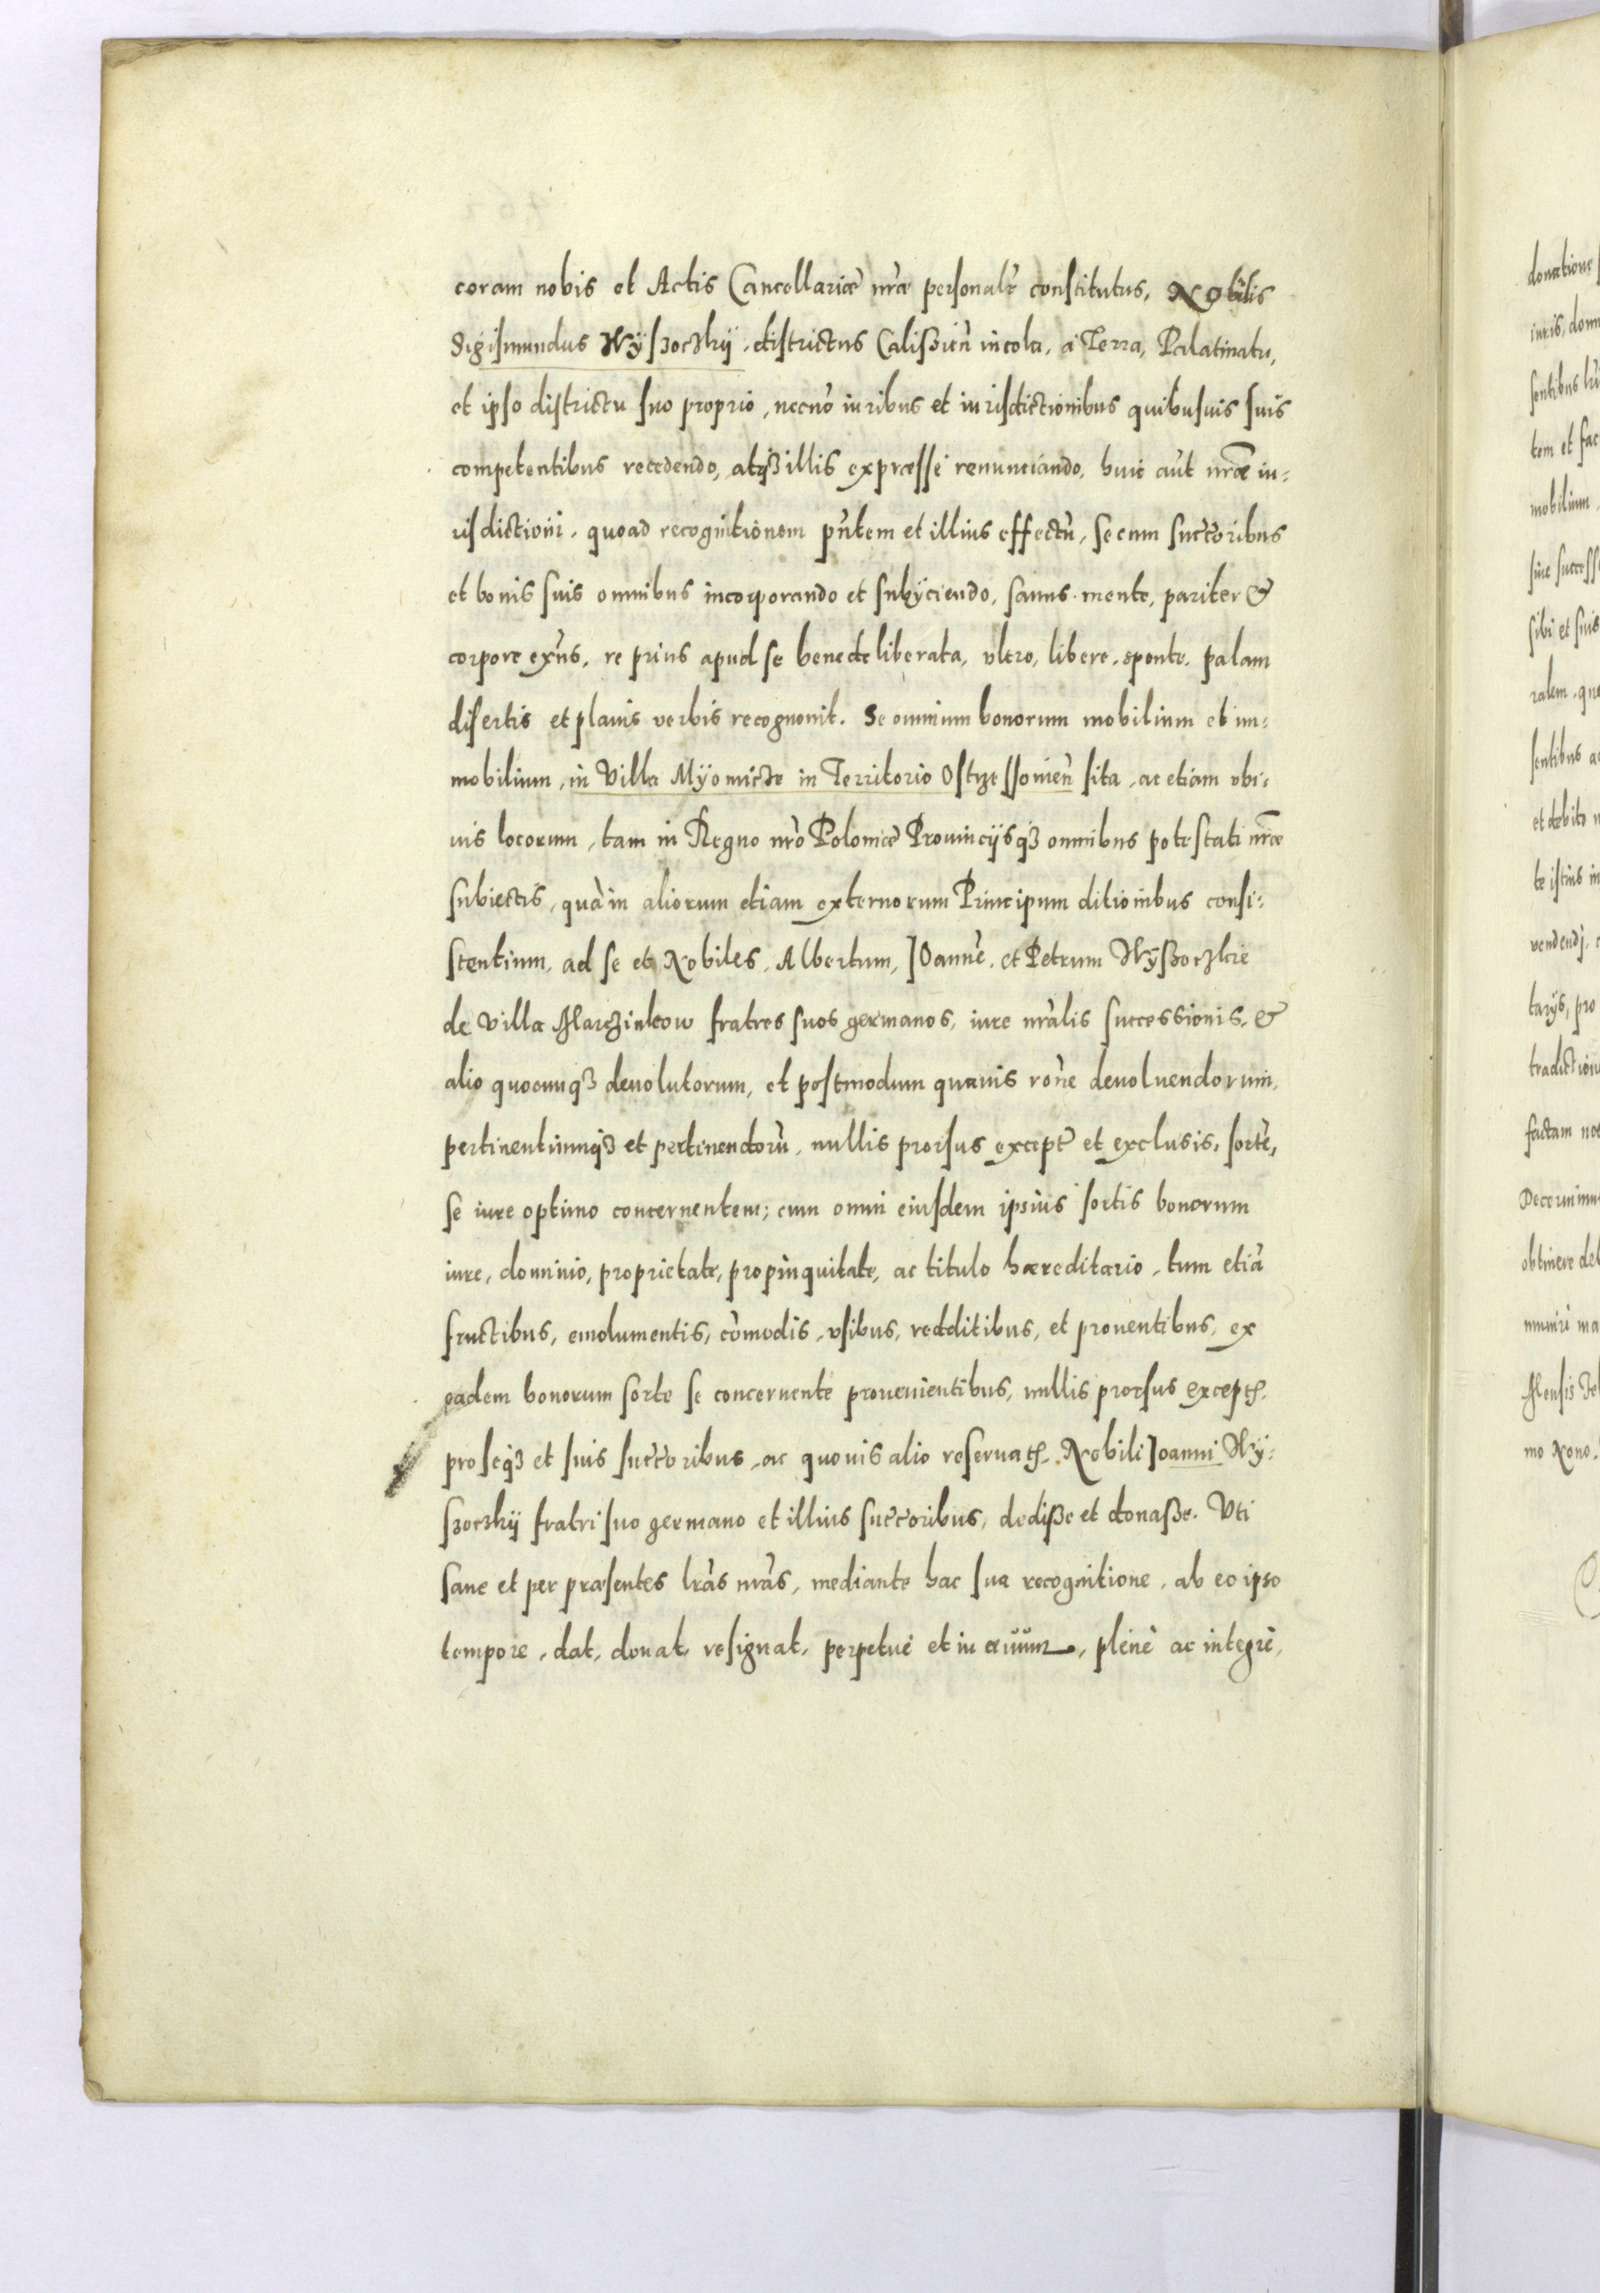 coram nobis et Actis Cancellariæ nr̃æ personalr̃ constitutus, Nobilis
Sigismundus Wÿszoczkij, districtus Caliszien̄ incola, à Terra, Palatinatu,
et ipso districtu suo proprio, necnō iuribus et iurisdictionibus quibusuis suis
competentibus recedendo, atq3 illis expresse renunciando, huic aūt nr̃æ iu-
risdictioni, quoad recognitionem pn̄tem et illius effectū, se cum succōribus
et bonis suis omnibus incorporando et subÿciendo, sanus mente, pariter &
corpore exn̄s, re prius apud se bene deliberata, vltro, libere, sponte, palam
disertis et planis verbis recognouit. Se omnium bonorum mobilium et im-
mobilium, in Villa Mÿomicze in Territorio Ostrzessonien̄ sita, ac etiam vbi-
uis locorum, tam in Regno nr̃o Poloniæ Prouincijsq3 omnibus potestati nr̃æ
subiectis, quā in aliorum etiam externorum Principum ditionibus consi-
stentium, ad se et Nobiles, Albertum, Ioannē, et Petrum Wÿszoczkie
de Villa Marczinkow fratres suos germanos, iure nr̃alis successionis, &
alio quocunq3 deuolutorum, et postmodum quauis rōne deuoluendorum,
pertinentiumq3 et pertinendorū, nullis prorsus except̃ et exclusis, sortē,
se iure optimo concernentem; cum omni eiusdem ipsius sortis bonorum
iure, dominio, proprietate, propinquitate, ac titulo hæreditario, tum etiā
fructibus, emolumentis, cōmodis, vsibus, redditibus, et prouentibus, ex
eadem bonorum sorte se concernente prouenientibus, nullis prorsus except̃,
pro seq3 et suis succōribus, ac quouis alio reseruat̃, Nobili Ioanni Wÿ-
szoczkij fratri suo germano et illius succōribus, dediße et donaße. Vti
sane et per præsentes lr̃as nr̃as, mediante hac sua recognitione, ab eo ipso
tempore, dat, donat, resignat, perpetuè et in æuum, plenè ac integrè,